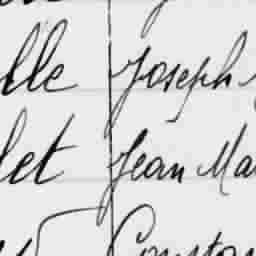 lle Joseph
let Jean Ma
Constan